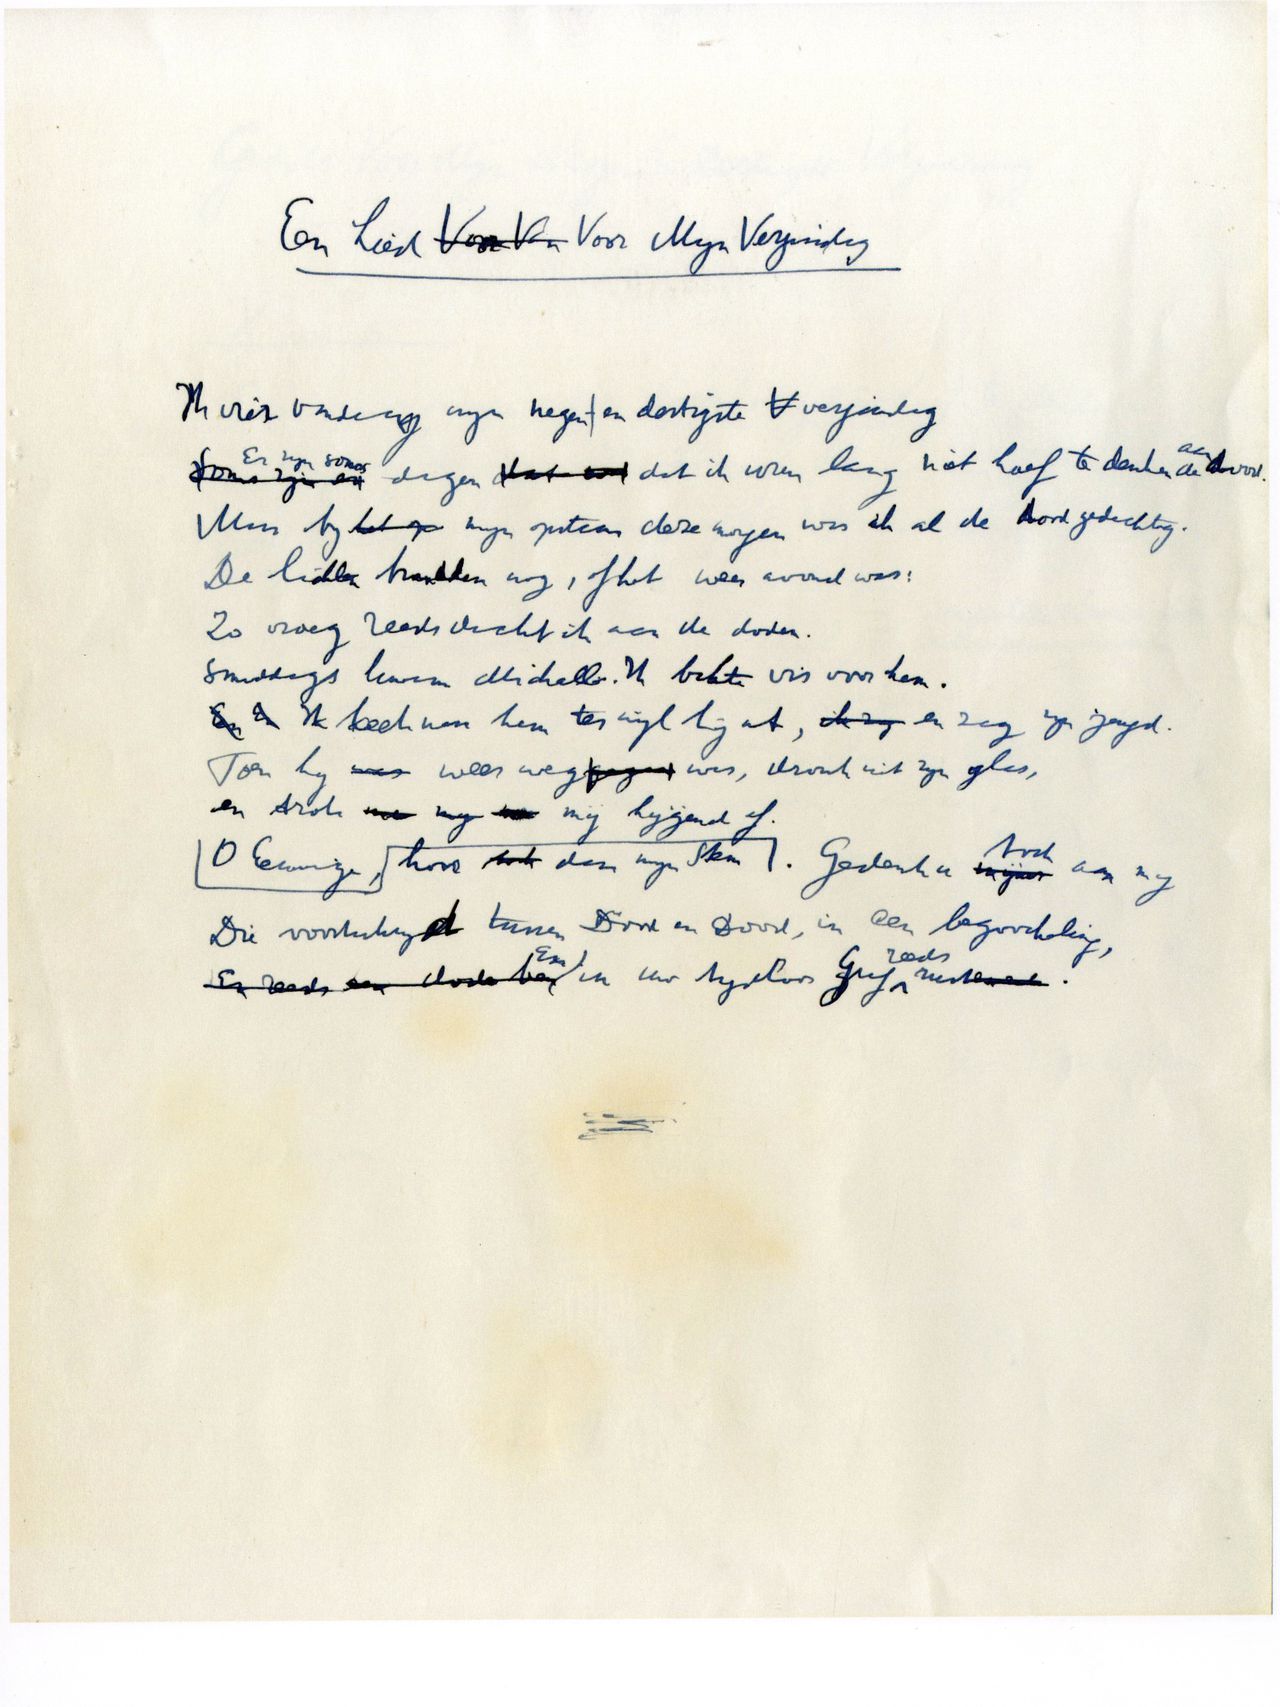 Een Lied Voor Van Voor Mijn Verjaardag
Ik vier vandaag mijn negen en dertigste verjaardag
Soms zijn er Er zijn soms dagen dat ik uren lang niet hoef te denken aan de dood.
Maar bij het op mijn opstaan deze morgen was ik al de dood gedachtig.
De lichten brandden nog, of het weer avond was:
Zo vroeg reeds dacht ik aan de doden.
Smiddags kwam Michael. Ik bakte vis voor hem.
En Ik keek naar hem terwijl hij at, ik zag en zag zijn jeugd.
Toen hij was weer weggegaan was, dronk uit zijn glas,
en trok me mij hijgend af.
O Eeuwige, hoor toch dan mijn Stem. Gedenk u toch aan mij
Die voortschrijdt tussen Dood en Dood, in een begoocheling,
En reeds een dode ben En in uw tijdloos Graf reeds rust.